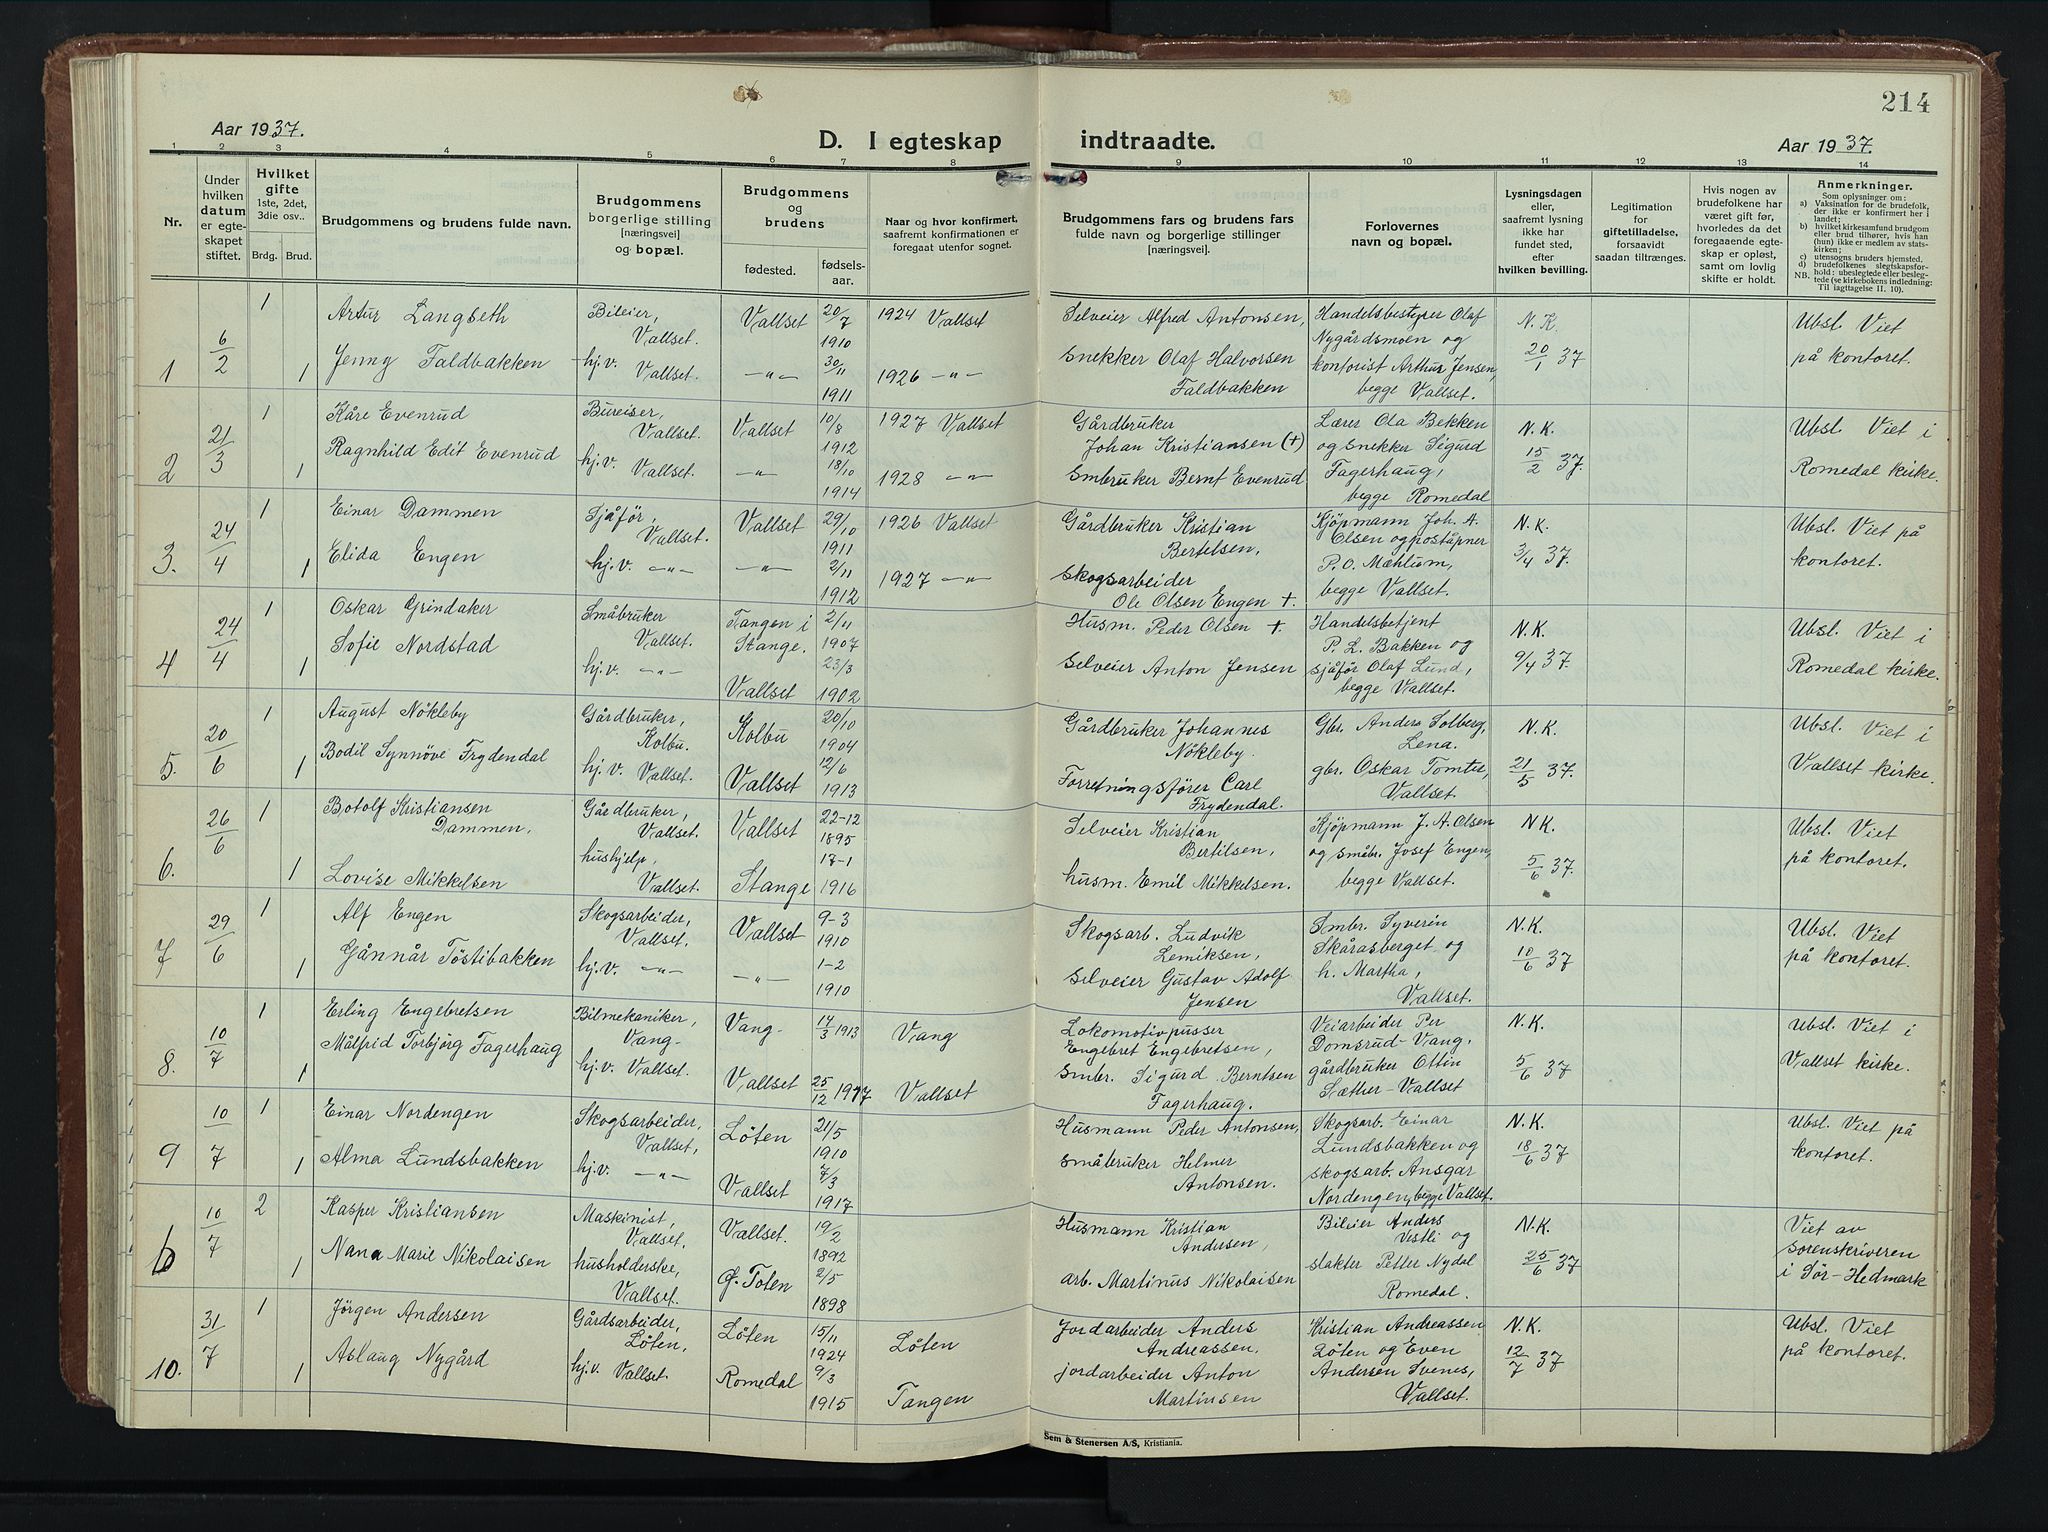 214
Aar 1937.
D. I egteskap indtraadte.
Aar 1937.
1 2 3 4 5 6 7 8 9 10 11 12 13 14
Nr.
Under hvilken datum er egteskapet stiftet.
Hvilket gifte 1ste, 2det, 3die osv..
Brdg. Brud.
Brudgommens og brudens fulde navn.
Brudgommens borgerlige stilling [næringsvei] og bopæl.
Brudgommens og brudens
fødested.
fødselsaar.
Naar og hvor konfirmert, saafremt konfirmationen er foregaat utenfor sognet.
Brudgommens fars og brudens fars fulde navn og borgerlige stillinger [næringsvei].
Forlovernes navn og bopæl.
Lysningsdagen eller, saafremt lysning ikke har fundet sted, efter hvilken bevilling.
Legitimation for giftetilladelse, forsaavidt saadan tiltrænges.
Hvis nogen av brudefolkene har været gift før, hvorledes da det foregaaende egteskap er opløst, samt om lovlig skifte er holdt.
Anmerkninger.
Som oplysninger om:
a) Vaksination for de brudefolk, der ikke er konfirmert her i landet;
b) hvilket kirkesamfund brudgom eller brud tilhører, hvis han (hun) ikke er medlem av statskirken;
c) utensogns bruders hjemsted.
d) brudefolkenes slegtskapsforhold: ubeslegtede eller beslegtede (se kirkebokens indledning: Til iagttagelse II. 10).
NB.
1 6/2 1 Artur Langseth Bileier, Vallset. Vallset 20/7 1910 1924 Vallset Selveier Alfred Antonsen, Handelsbestyrer Olaf Nygårdsmoen og kontorist Arthur Jensen, begge Vallset. N.K. 20/1 37 Ubsl. Viet på kontoret.
1 Jenny Faldbakken hj.v. Vallset. -"- 30/11 1911 1926 -"- Snekker Olaf Halvorsen Faldbakken
2 21/3 1 Kåre Evenrud Bureiser, Vallset. Vallset 10/8 1912 1927 Vallset Gårdbruker Johan Kristiansen (+) Lærer Ola Bekken og snekker Sigurd Fagerhaug, begge Romedal N.K. 15/2 37. Ubsl. Viet i Romedal kirke.
1 Ragnhild Edit Evenrud hj.v. Vallset -"- 18/10 1914 1928 -"- Småbruker Bernt Evenrud
3. 24/4 1 Einar Dammen Sjåför, Vallset. Vallset 29/10 1911 1926 Vallset Gårdbruker Kristian Bertelsen, Kjöpmann Joh. A. Olsen og poståpner P.O. Mæhlum, begge Vallset. N.K. 3/4 37 Ubsl. Viet på kontoret.
1 Elida Engen hj.v. -"- -"- 2/11 1912 1927 -"- Skogsarbeider Ole Olsen Engen +.
4 24/4 1 Oskar Grindaker Småbruker Vallset. Tangen i Stange. 2/11 1907 Husm. Peder Olsen +. Handelsbetjent P. L. Bakken og sjåför Olaf Lund, begge Vallset. N.K. 9/4 37. Ubsl. Viet i Romedal kirke.
1 Sofie Nordstad hj.v. -"- Vallset 23/3 1902 Selveier Anton Jensen
5. 20/6 1 August Nökleby Gårdbruker, Kolbu. Kolbu 20/10 1904 Gårdbruker Johannes Nökleby. Gbr. Anders Solberg, Lena. gbr. Oskar Tomter, Vallset. N.K. 21/5 37. Ubsl. Viet i Vallset kirke.
1 Bodil Synnöve Frydendal hj.v. Vallset. Vallset 12/6 1913 Forretningsförer Carl Frydendal.
6. 26/6 1 Botolf Kristiansen Dammen, Gårdbruker, Vallset. Vallset 22-12 1895 Selveier Kristian Bertilsen, Kjöpmann J. A. Olsen og småbr. Josef Engen, begge Vallset. N.K. 5/6 37. Ubsl. Viet på kontoret.
1 Lovise Mikkelsen hushjelp, Vallset. Stange 17-1 1916 husm. Emil Mikkelsen.
7 29/6 1 Alf Engen Skogsarbeider, Vallset. Vallset 9-3 1910 Skogsarb. Ludvik Lemiksen, Smbr. Syverin Skårasberget og h. Martha, Vallset. N.K. 18/6 37 Ubsl. Viet på kontoret.
1 Gånnår Töstibakken hj.v. -"- -"- 1-2 1910 Selveier Gustav Adolf Jensen
8. 10/7 1 Erling Engebretsen Bilmekaniker, Vang- Vang- 14/3 1913 Vang Lokomotivpusser Engebret Engebretsen, Veiarbeider Per Domsrud-Vang. gårdbruker Ottin Sæther-Vallset N.K. 5/6 37 Ubsl. Viet i Vallset kirke.
1 Målfrid Torbjörg Fagerhaug hj.v. Vallset. Vallset 25/12 1917 Vallset Smbr. Sigurd Berntsen Fagerhaug.
9 10/7 1 Einar Nordengen Skogsarbeider, Vallset, Löten 21/5 1910 Husmann Peder Antonsen, Skogsarb. Einar Lundsbakken og skogsarb. Ansgar Nordengen, begge Vallset. N.K. 18/6 37 Ubsl. Viet på kontoret.
1 Alma Lundsbakken hj.v. -"- Vallset 7/3 1917 Småbruker Helmer Antonsen.
b 10/7 2 Kasper Kristiansen Maskinist, Vallset, Vallset. 19/2 1892 Husmann Kristian Andersen, Bileier Anders Vestli og slakter Petter Nydal Romedal. N.K. 25/6 37 Viet av sorenskriveren i Sör-Hedmark
1 Nana Marie Nikolaisen husholderske, Vallset. Ø. Toten 2/5 1898 arb. Martinus Nikolaisen
10. 31/7 1 Jörgen Andersen Gårdsarbeider, Löten, Löten 15/11 1924 Löten Jordarbeider Anders Andreassen, Kristian Andreassen Löten og Even Andersen Svenes, Vallset. N.K. 12/7 37 Ubsl. Viet på kontoret.
1 Aslaug Nygård hj.v. Vallset. Romedal 9/3 1915 Tangen jordarbeider Anton Martinsen
Sem & Stenersen A/S, Kristiania.